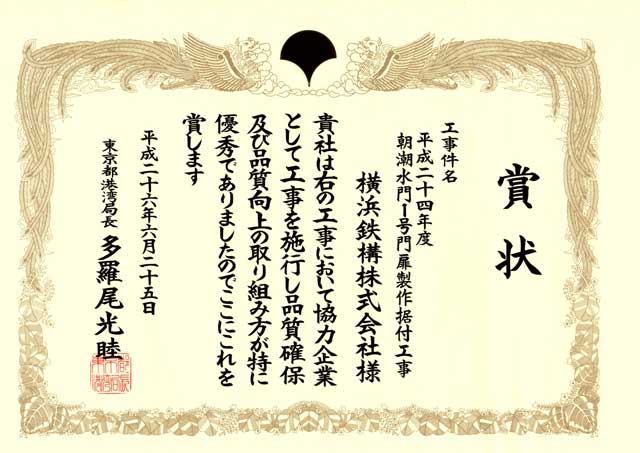 賞状
工事件名
平成二十四年度
朝潮水門1号門扉製作据付工事
横浜鉄構株式会社様
貴社は右の工事において協力企業
として工事を施行し品質確保
及び品質向上の取り組み方が特に
優秀でありましたのでここにこれを
賞します
平成二十六年六月二十五日
東京都港湾局長 多羅尾光睦